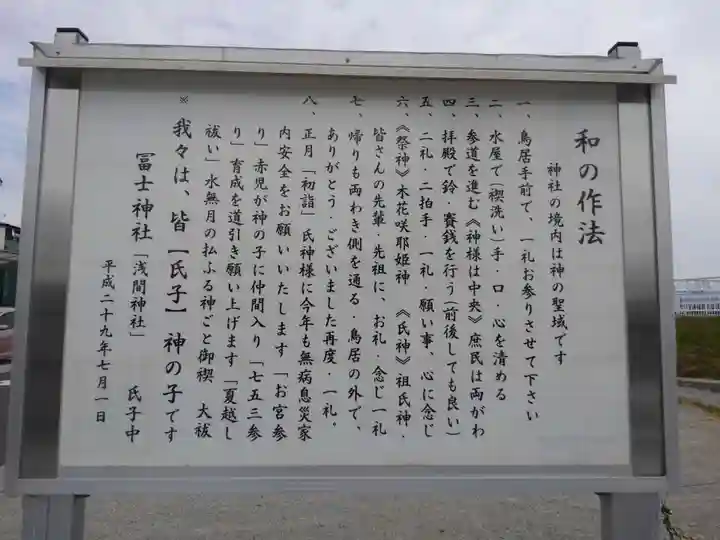 和の作法
神社の境内は神の聖域です
一、鳥居手前で、一礼お参りさせて下さい
二、水屋で(禊洗い)手・口・心を清める
三、参道を進む《神様は中央》庶民は両がわ
四、拝殿で鈴・賽銭を行う(前後しても良い)
五、二礼・二拍手・一礼・願い事、心に念じ
六、《祭神》木花咲耶姫神 《氏神》祖氏神・
皆さんの先輩・先祖に、お礼・念じ一礼
七、帰りも両わき側を通る・鳥居の外で、
ありがとう・ございました再度・一礼・
八、正月「初詣」氏神様に今年も無病息災家
内安全をお願いいたします「お宮参
り」赤児が神の子に仲間入り「七五三参
り」育成を道引き願い上げます「夏越し
祓い」水無月の払ふる神ごと御禊 大祓
※我々は、皆【氏子】神の子です
冨士神社「浅間神社」 氏子中
平成二十九年七月一日